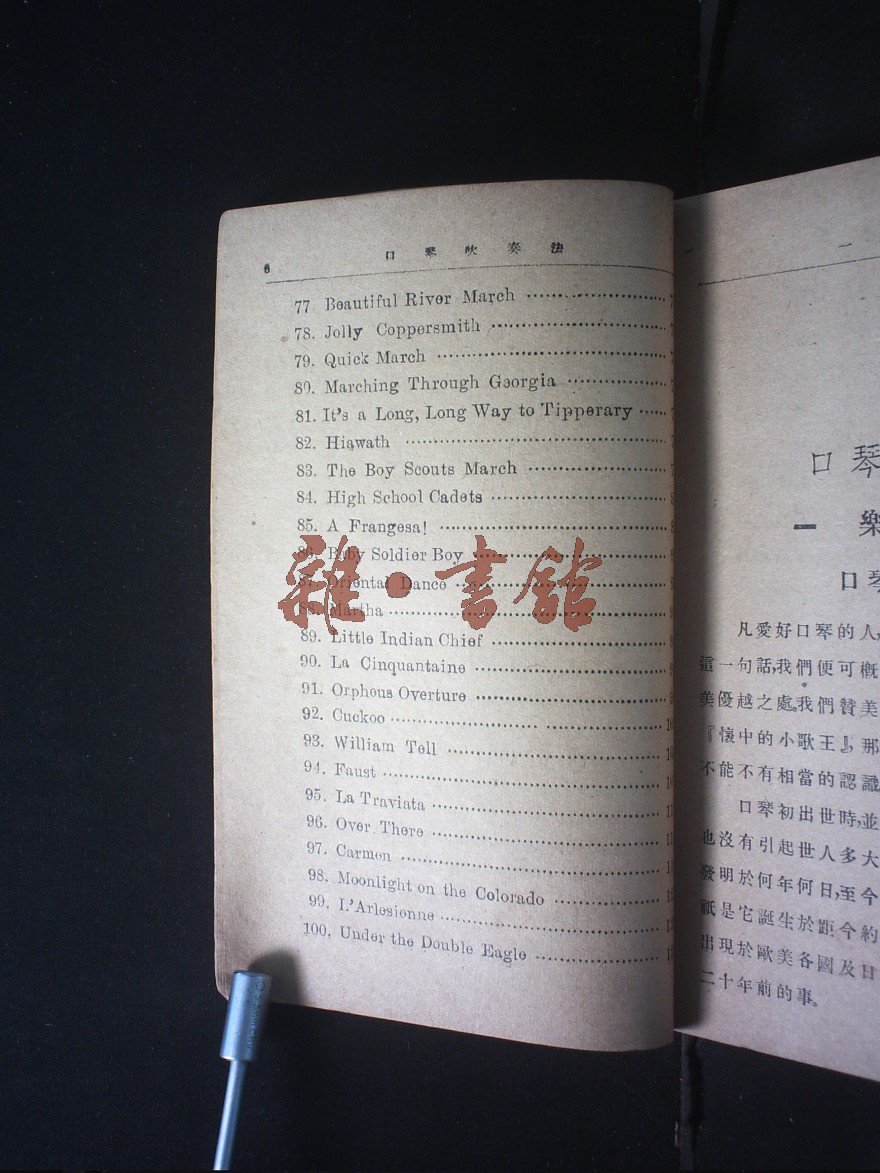 6
口琴吹奏法
77 Beautiful River March
78. Jolly Coppersmith
79. Quick March
80. Marching Through Georgia
81. It's a Long, Long Way to Tipperary
82. Hiawath
83. The Boy Scouts March
84. High School Cadets
85. A Frangesa!
86. Baby Soldier Boy
87. Oriental Dance
88. Martha
89. Little Indian Chief
90. La Cinquantaine
91. Orpheus Overture
92. Cuckoo
93. William Tell
94. Faust
95. La Traviata
96. Over There
97. Carmen
98. Moonlight on the Colorado
99. L'Arlesienne
100. Under the Double Eagle
雜·書館
一 二
口琴
一 樂
口琴
凡愛好口琴的人,
這一句話,我們便可概
美優越之處,我們贊美
『懷中的小歌王』,那
不能不有相當的認識
口琴初出世時,並
也沒有引起世人多大
發明於何年何日,至今
祇是它誕生於距今約
出現於歐美各國及日
二十年前的事。